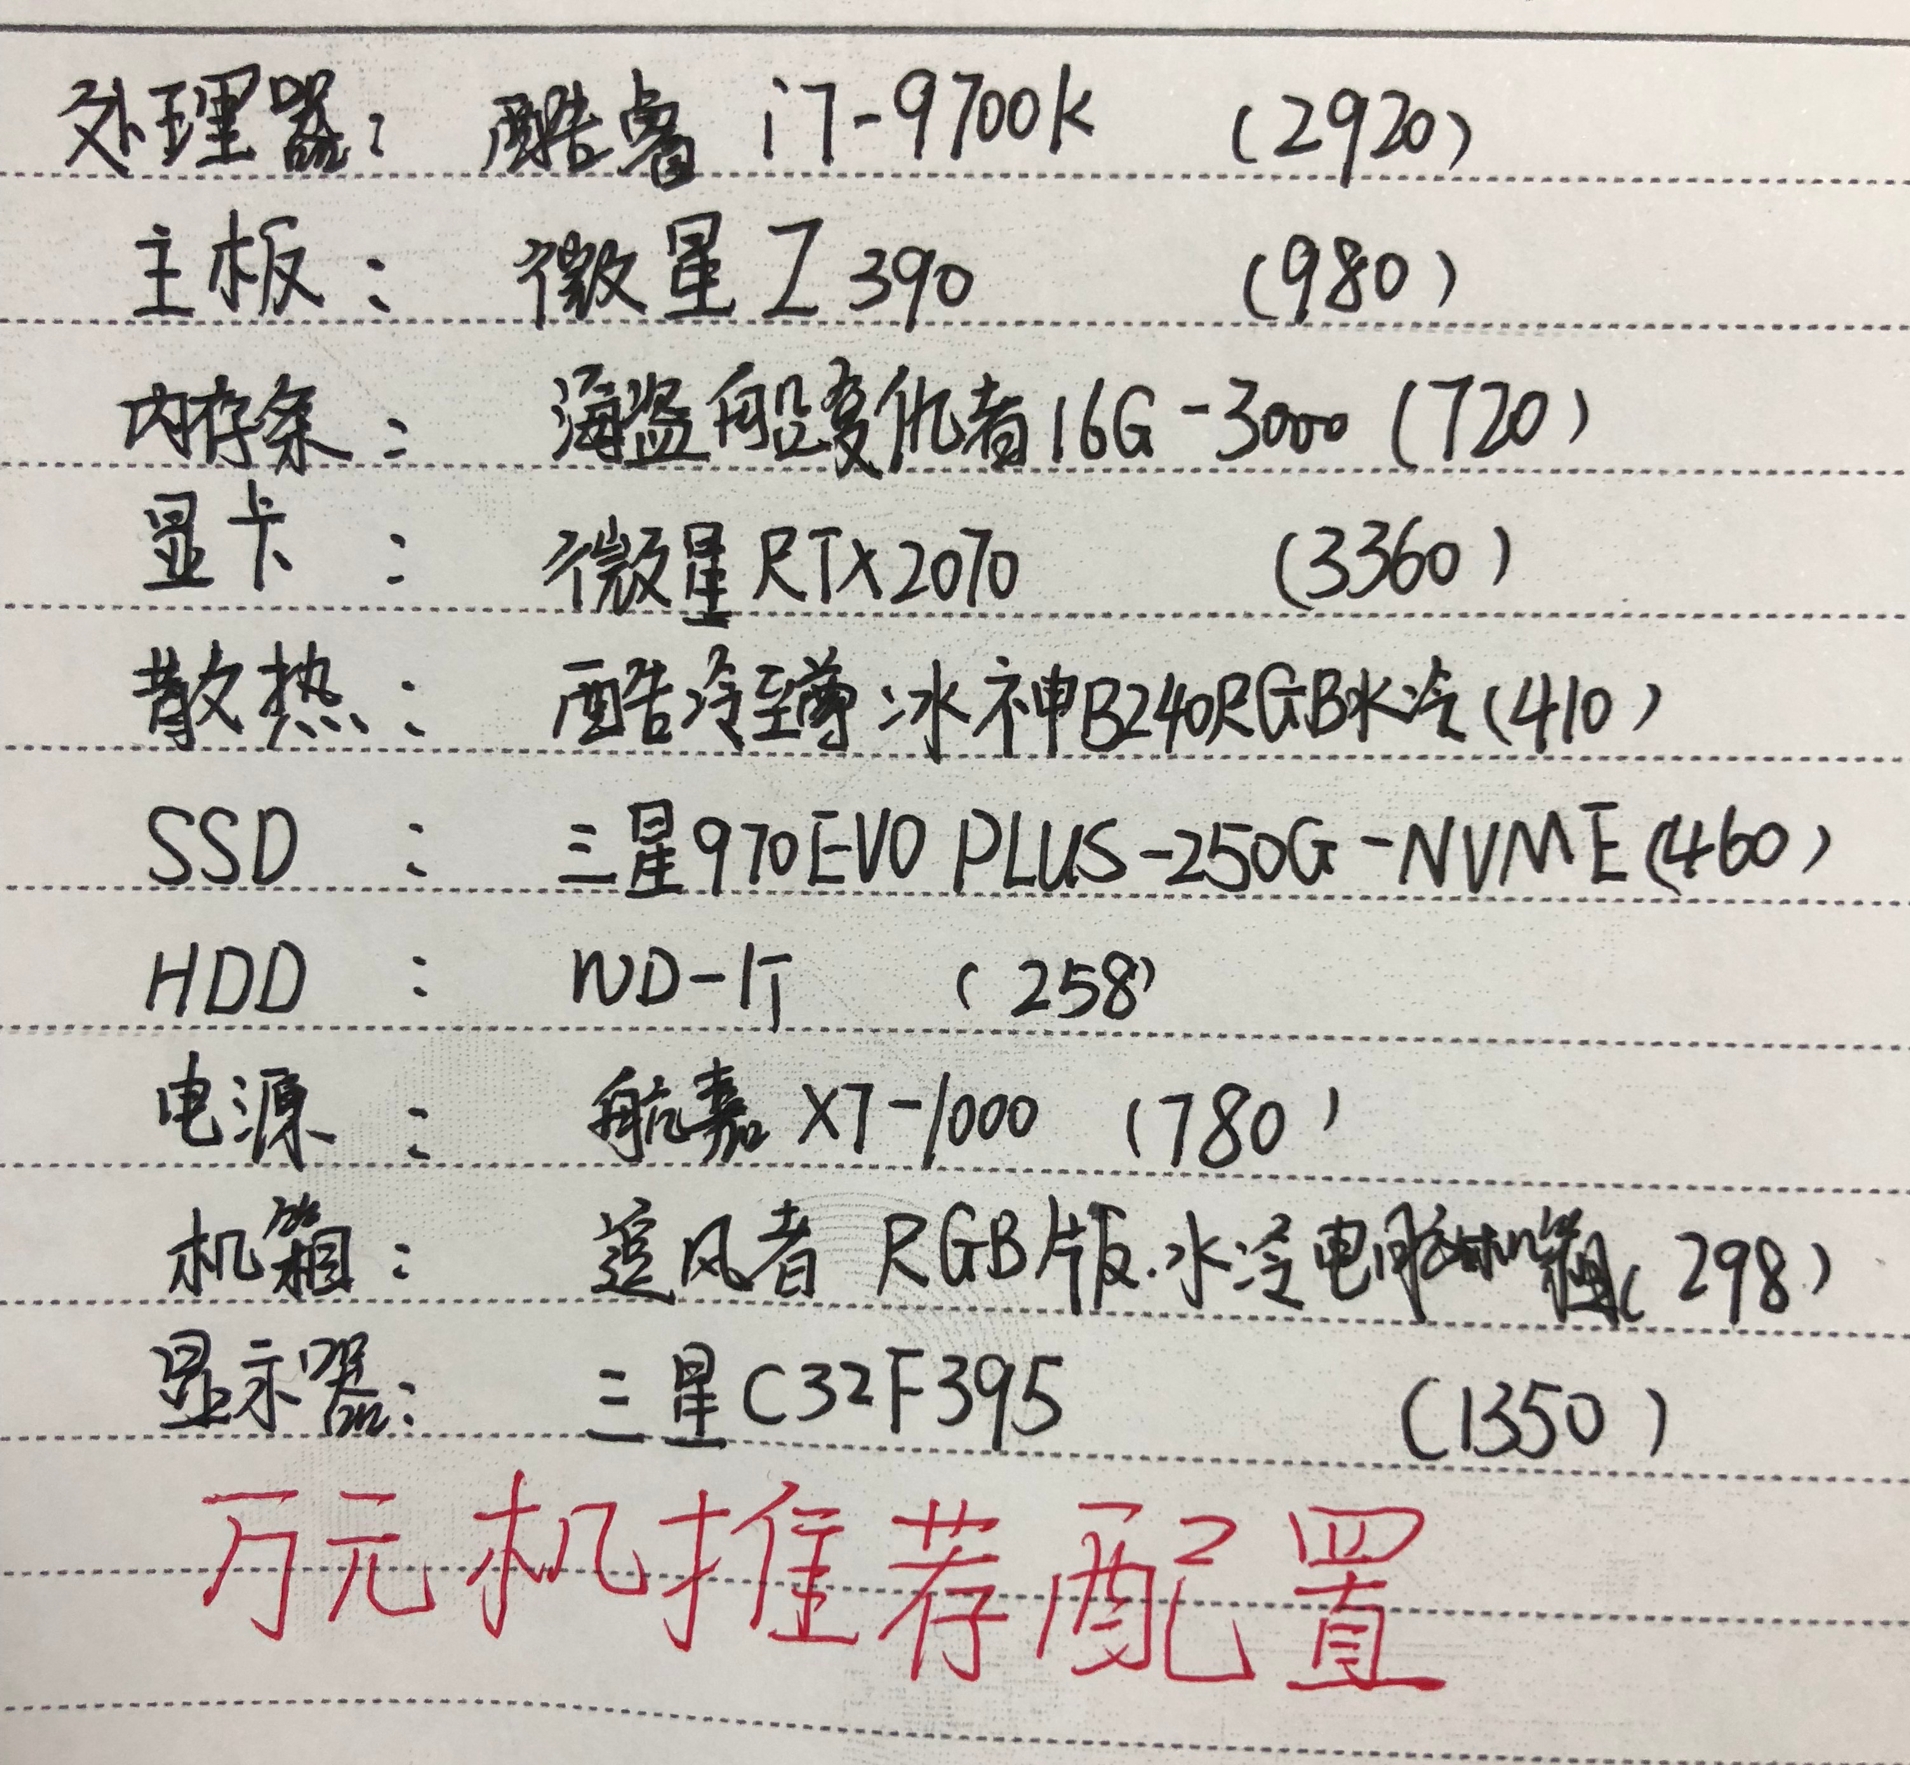 处理器: 酷睿 i7-9700k (2920)
主板: 微星Z390 (980)
内存条: 海盗船复仇者16G-3000 (720)
显卡: 微星RTX2070 (3360)
散热: 酷冷至尊冰神B240RGB水冷(410)
SSD: 三星970EVO PLUS-250G-NVME(460)
HDD: WD-1T (258)
电源: 航嘉 X7-1000 (780)
机箱: 追风者 RGB版.水冷电脑机箱(298)
显示器: 三星C32F395 (1350)
万元机推荐配置